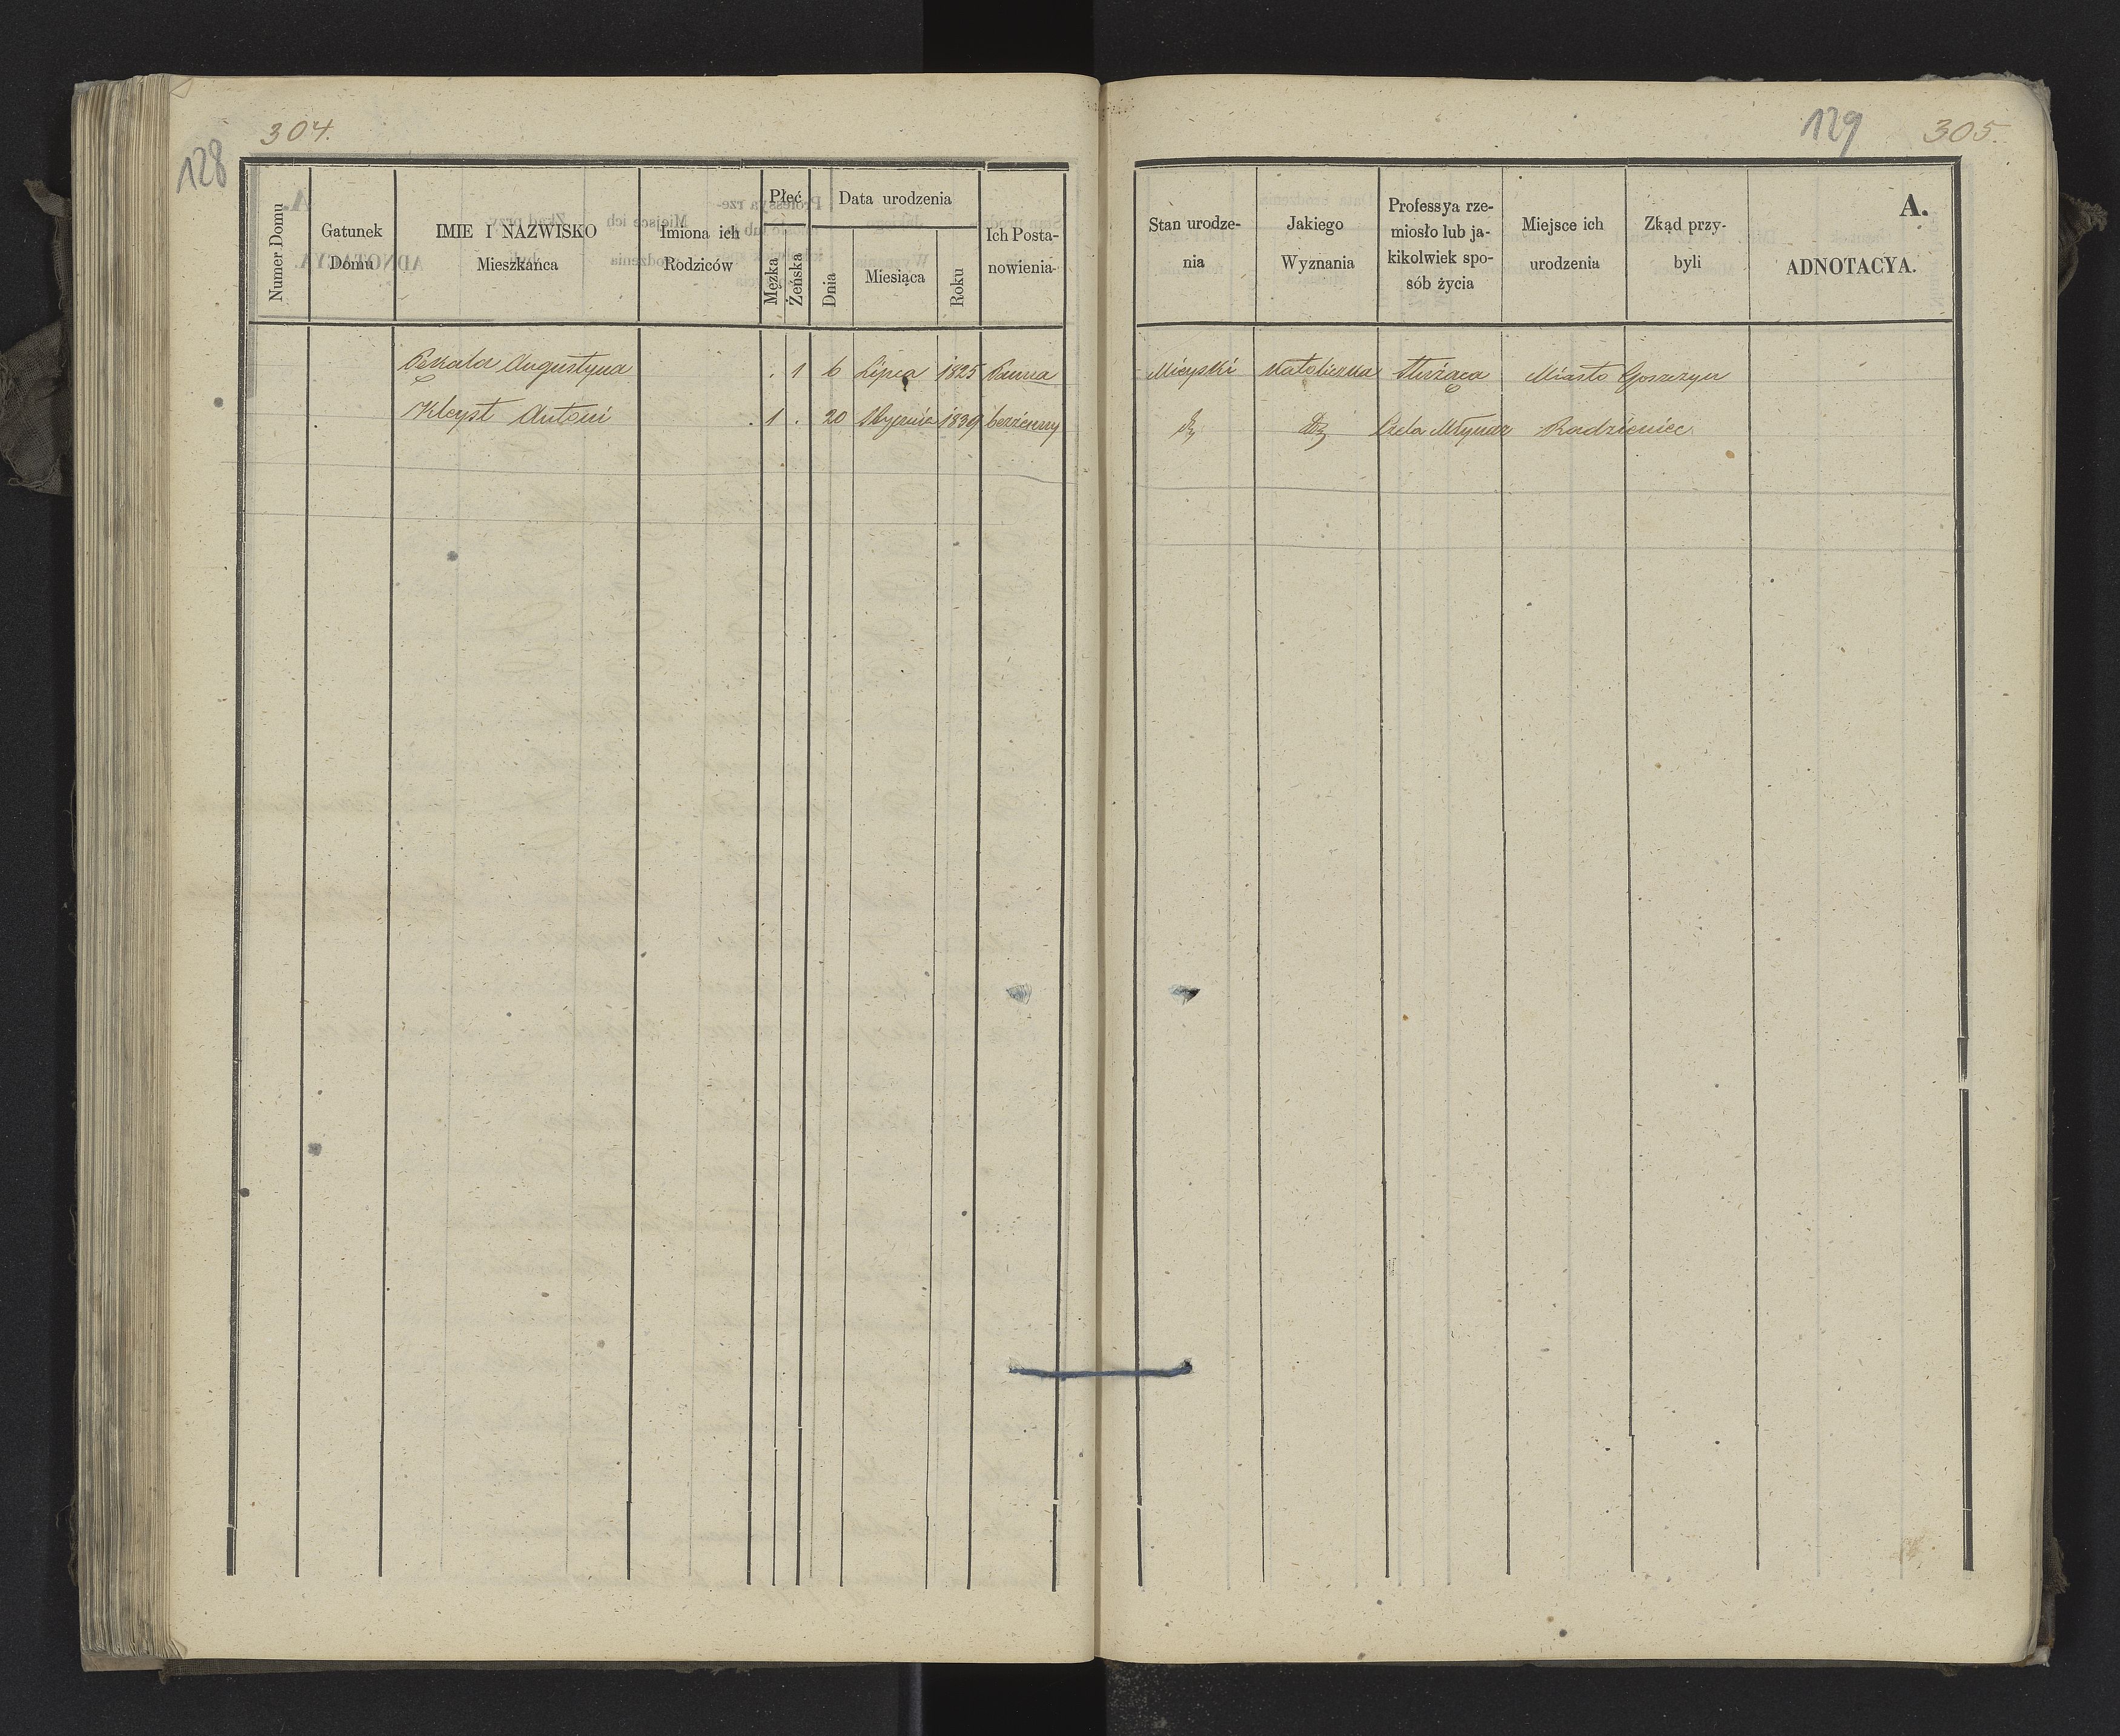 304.
128
Numer Domu
Gatunek
Domu
IMIE I NAZWISKO
Mieszkańca
Imiona ich
Rodziców
Płeć
Męzka
Żeńska
Data urodzenia
Dnia
Miesiąca
Roku
Ich Posta-
nowienia
Augustyna . 1 6 Lipca 1825 Panna
Kleyst Antoni . 1 . 20 Stycznia 1839 bezżenny
129 305.
A.
Stan urodze-
nia
Jakiego
Wyznania
Professya rze-
miosło lub ja-
kikolwiek spo-
sób życia
Miejsce ich
urodzenia
Zkąd przy-
byli
ADNOTACYA.
Mieyski Katoliczka Służąca Miasto Goszczyn
Młynar Radzieniec